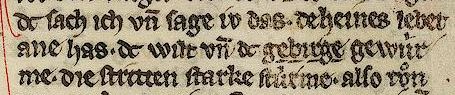 dc sach ich vn̄ sage iv das. deheines lebet
ane has. dc wilt vn̄ dc geburge gewúr
me. die striten starke stúrme. also